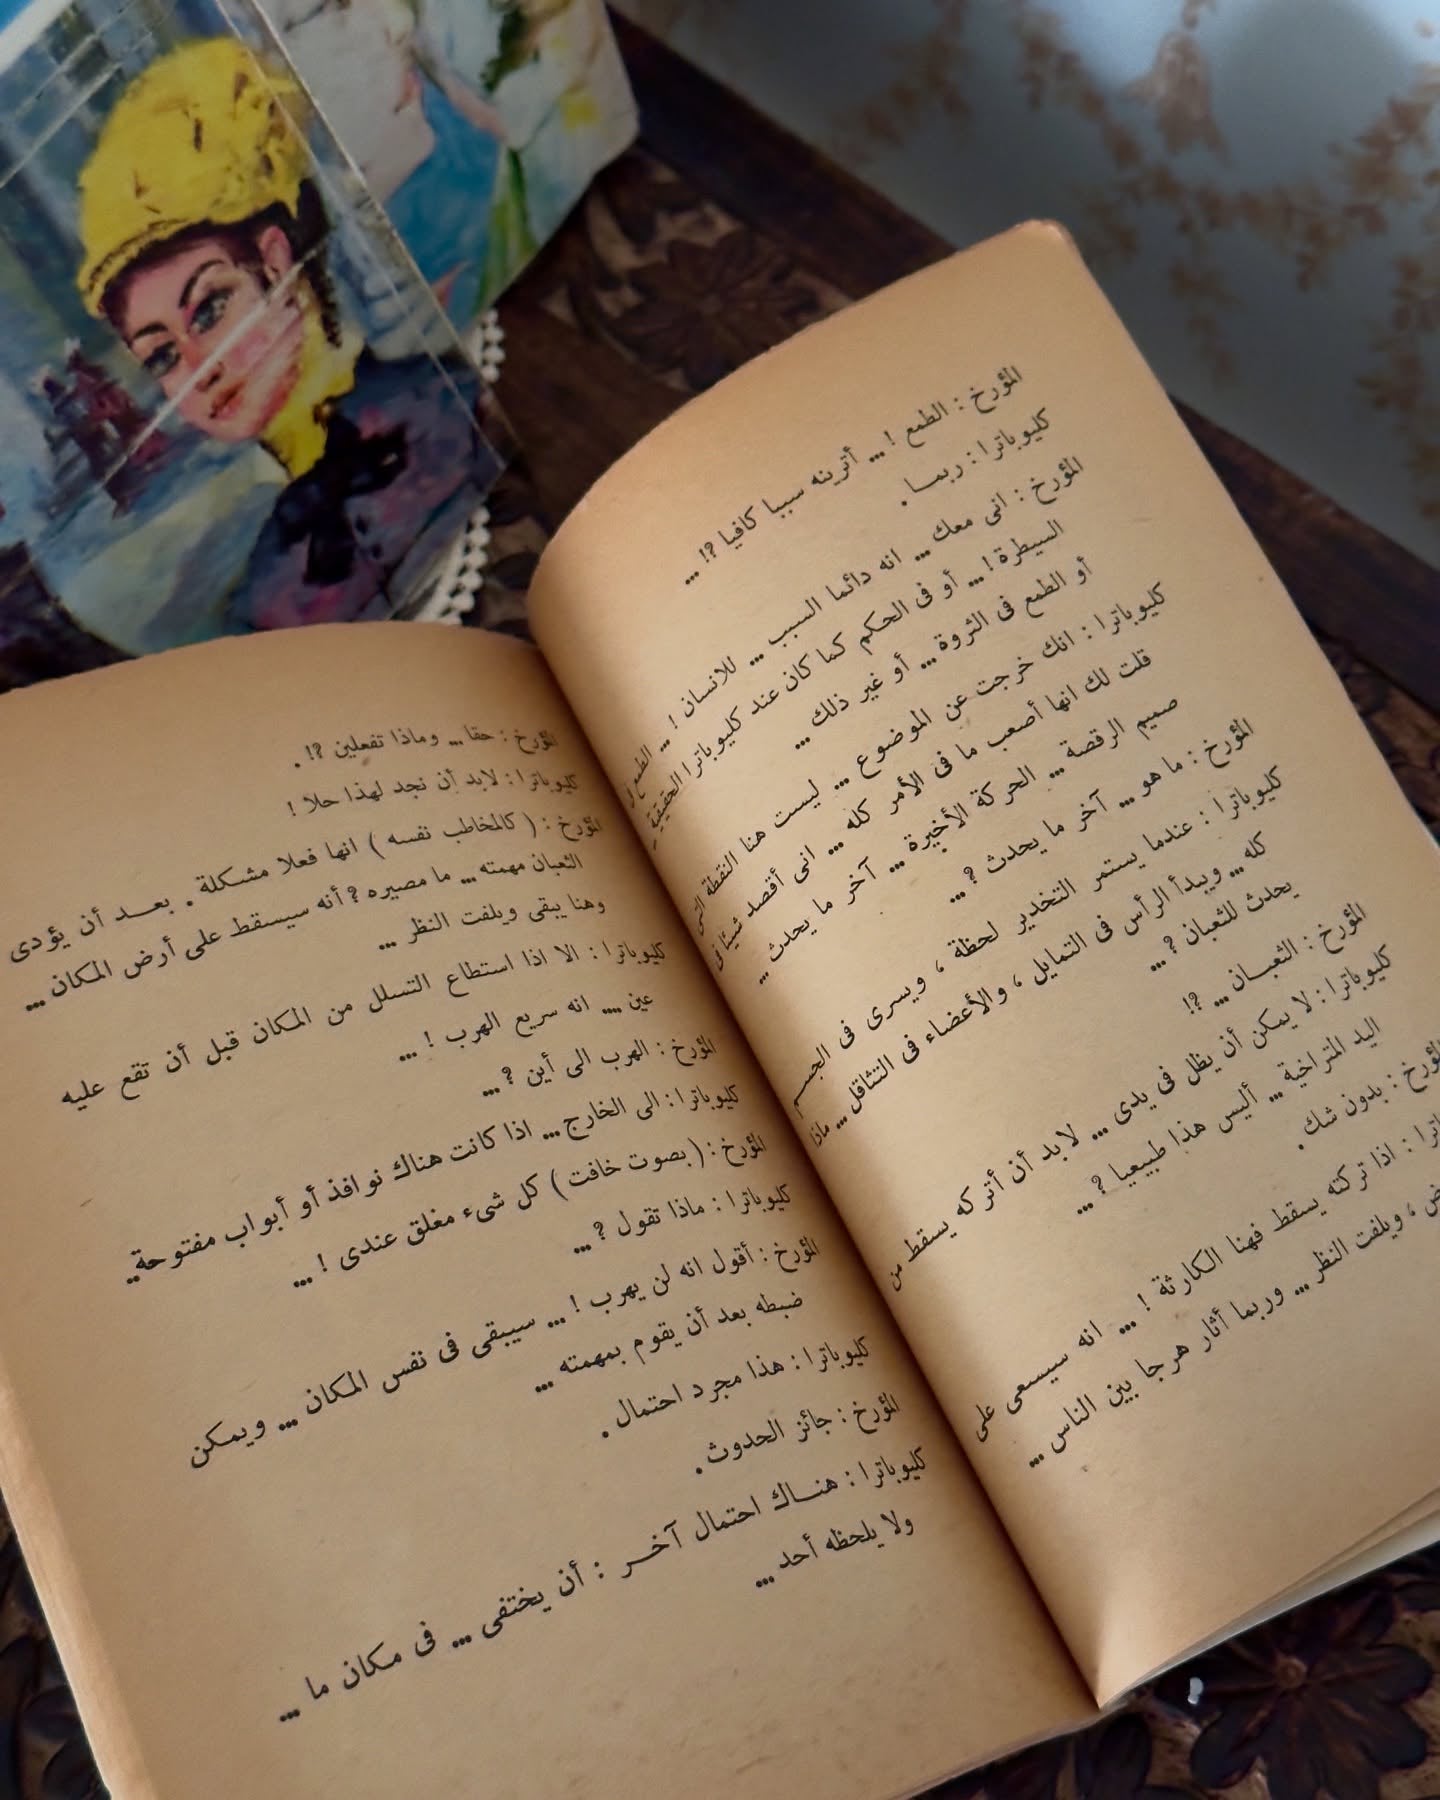 المؤرخ : الطمع ! ... أترينه سببا كافيا ?! ...
كليوباترا : ربمـا .
المؤرخ : انى معك ... انه دائما السبب ... للانسان ! ... الطمع فى
السيطرة ! ... أو فى الحكم كما كان عند كليوباترا الحقيقية ـ
أو الطمع فى الثروة ... أو غير ذلك ...
كليوباترا : انك خرجت عن الموضوع ... ليست هنا النقطة التى
قلت لك انها أصعب ما فى الأمر كله ... انى أقصد شيئا فى
صميم الرقصة ... الحركة الأخيرة ... آخر ما يحدث ...
المؤرخ : ما هو ... آخر ما يحدث ? ...
كليوباترا : عندما يستمر التخدير لحظة ، ويسرى فى الجسـم
كله ... ويبدأ الرأس فى التمايل ، والأعضاء فى التثاقل ... ماذا
يحدث للثعبان ? ...
المؤرخ : الثعبـان ... ?!
كليوباترا : لا يمكن أن يظل فى يدى ... لابد أن أتركه يسقط من
اليد المتراخية ... أليس هذا طبيعيا ? ...
المؤرخ : بدون شك .
: اذا تركته يسقط فهنا الكارثة ! ... انه سيسعى على
، ويلفت النظر ... وربما أثار هرجا بين الناس ...
المؤرخ : حقا ... وماذا تفعلين ?! .
كليوباترا : لابد أن نجد لهذا حلا !
المؤرخ : ( كالمخاطب نفسه ) انها فعلا مشكلة . بعـد أن يؤدى
الثعبان مهمته ... ما مصيره ? أنه سيسقط على أرض المكان ...
وهنا يبقى ويلفت النظر ...
كليوباترا : الا اذا استطاع التسلل من المكان قبل أن تقع عليه
عين .... انه سريع الهرب ! ...
المؤرخ : الهرب الى أين ? ...
كليوباترا : الى الخارج ... اذا كانت هناك نوافذ أو أبواب مفتوحة ..
المؤرخ : ( بصوت خافت ) كل شىء مغلق عندى ! ...
كليوباترا : ماذا تقول ? ...
المؤرخ : أقول انه لن يهرب ! ... سيبقى فى نفس المكان ... ويمكن
ضبطه بعد أن يقوم بمهمته ...
كليوباترا : هذا مجرد احتمال .
المؤرخ : جائز الحدوث .
كليوباترا : هنـاك احتمال آخـر : أن يختفى ... فى مكان ما ...
ولا يلحظه أحد ...